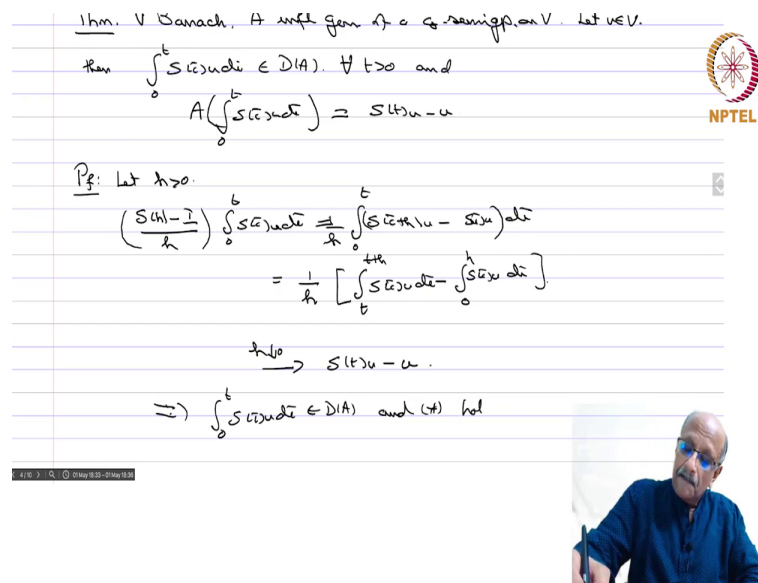 Thm. V Banach, A infl gen of a c₀-semigp. on V. Let u∈V.
then ∫₀ᵗ S(τ)u dτ ∈ D(A). ∀ t>0 and
A(∫₀ᵗ S(τ)u dτ) = S(t)u - u
NPTEL
Pf: Let h>0.
((S(h) - I)/h) ∫₀ᵗ S(τ)u dτ = 1/h ∫₀ᵗ (S(τ+h)u - S(τ)u) dτ
= 1/h [∫ₜᵗ⁺ʰ S(τ)u dτ - ∫₀ʰ S(τ)u dτ].
h↓0 ⟶ S(t)u - u.
⇒) ∫₀ᵗ S(τ)u dτ ∈ D(A) and (*) hol
4 / 10 01 May 18:33 – 01 May 18:36